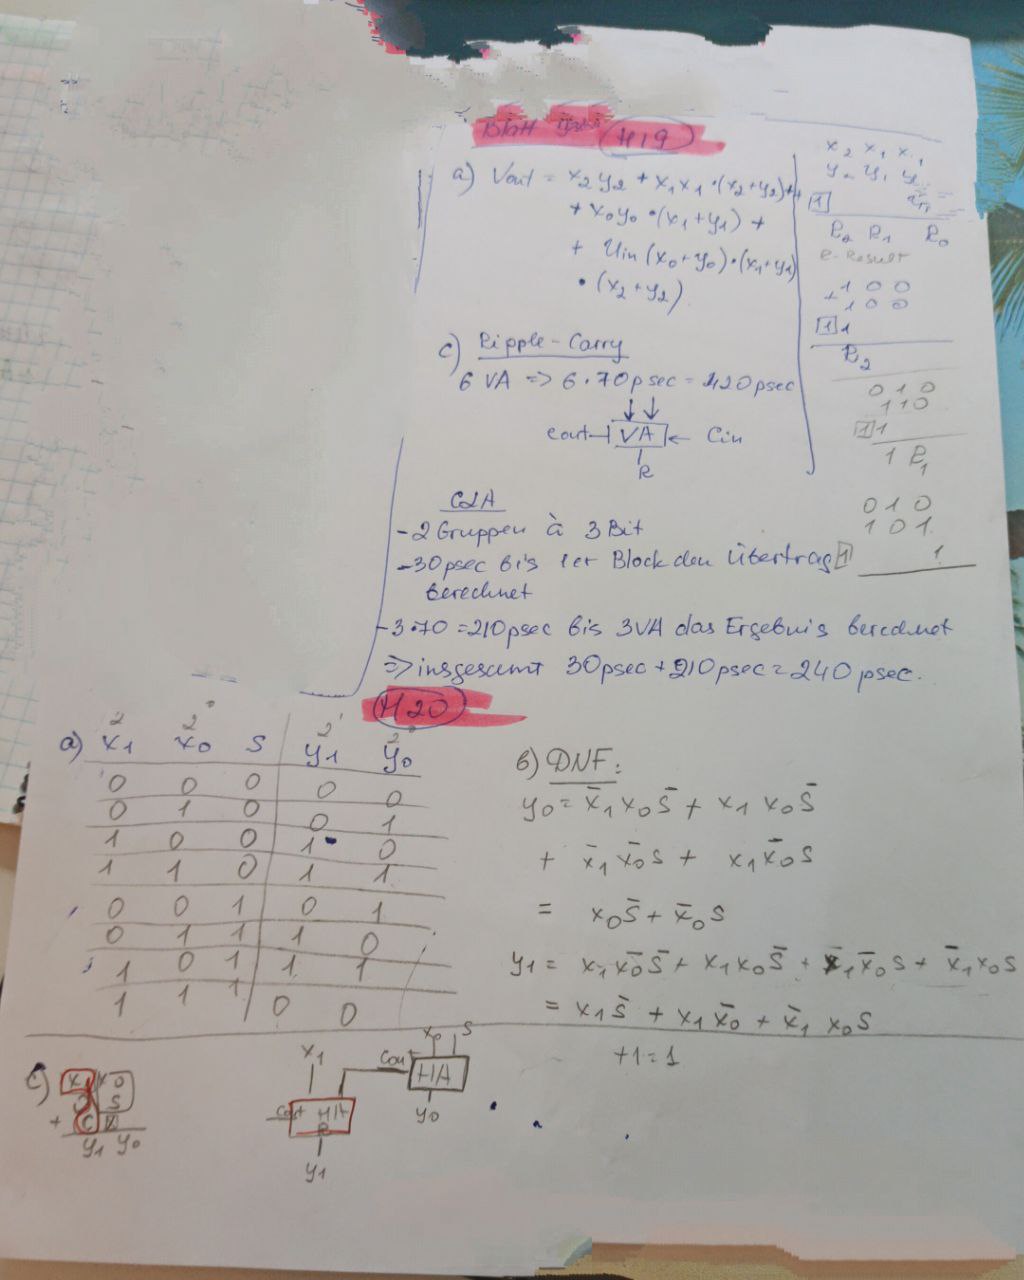 H19
a) Vout = x₂y₂ + x₁x₁·(x₂+y₂)+
+ x₀y₀·(x₁+y₁) +
+ Uin (x₀+y₀)·(x₁+y₁)
·(x₂+y₂)
c) Ripple-Carry
6 VA => 6·70psec = 420psec
cout VA ← Cin
R
CLA
- 2 Gruppen à 3 Bit
- 30psec bis 1er Block den Übertrag
berechnet
- 3·70 = 210psec bis 3VA das Ergebnis berechnet
=> insgesamt 30psec + 210psec = 240 psec.
x₂ x₁ x₁
1
R₂ R₁ R₀
R-Result
1 0 0
+ 1 0 0
1 1
R₂
0 1 0
1 1 0
1 1
1 R₁
0 1 0
1 0 1
1 1
H20
2 2⁰ 2¹ 2⁰
a) x₁ x₀ S y₁ y₀
0 0 0 0 0
0 1 0 0 1
1 0 0 1 0
1 1 0 1 1
0 0 1 0 1
0 1 1 1 0
1 0 1 1 1
1 1 1 0 0
b) DNF:
y₀ = x̄₁x₀s̄ + x₁x₀s̄
+ x̄₁x̄₀s + x₁x̄₀s
= x₀s̄ + x̄₀s
y₁ = x₁x̄₀s̄ + x₁x₀s̄ + x₁x̄₀s + x̄₁x₀s
= x₁s̄ + x₁x̄₀ + x̄₁x₀s
+1=1
c) x₁ x₀
0 S
+ C
y₁ y₀
x₁ Cout x₀ S
HA
Cout HA
R
y₀
y₁